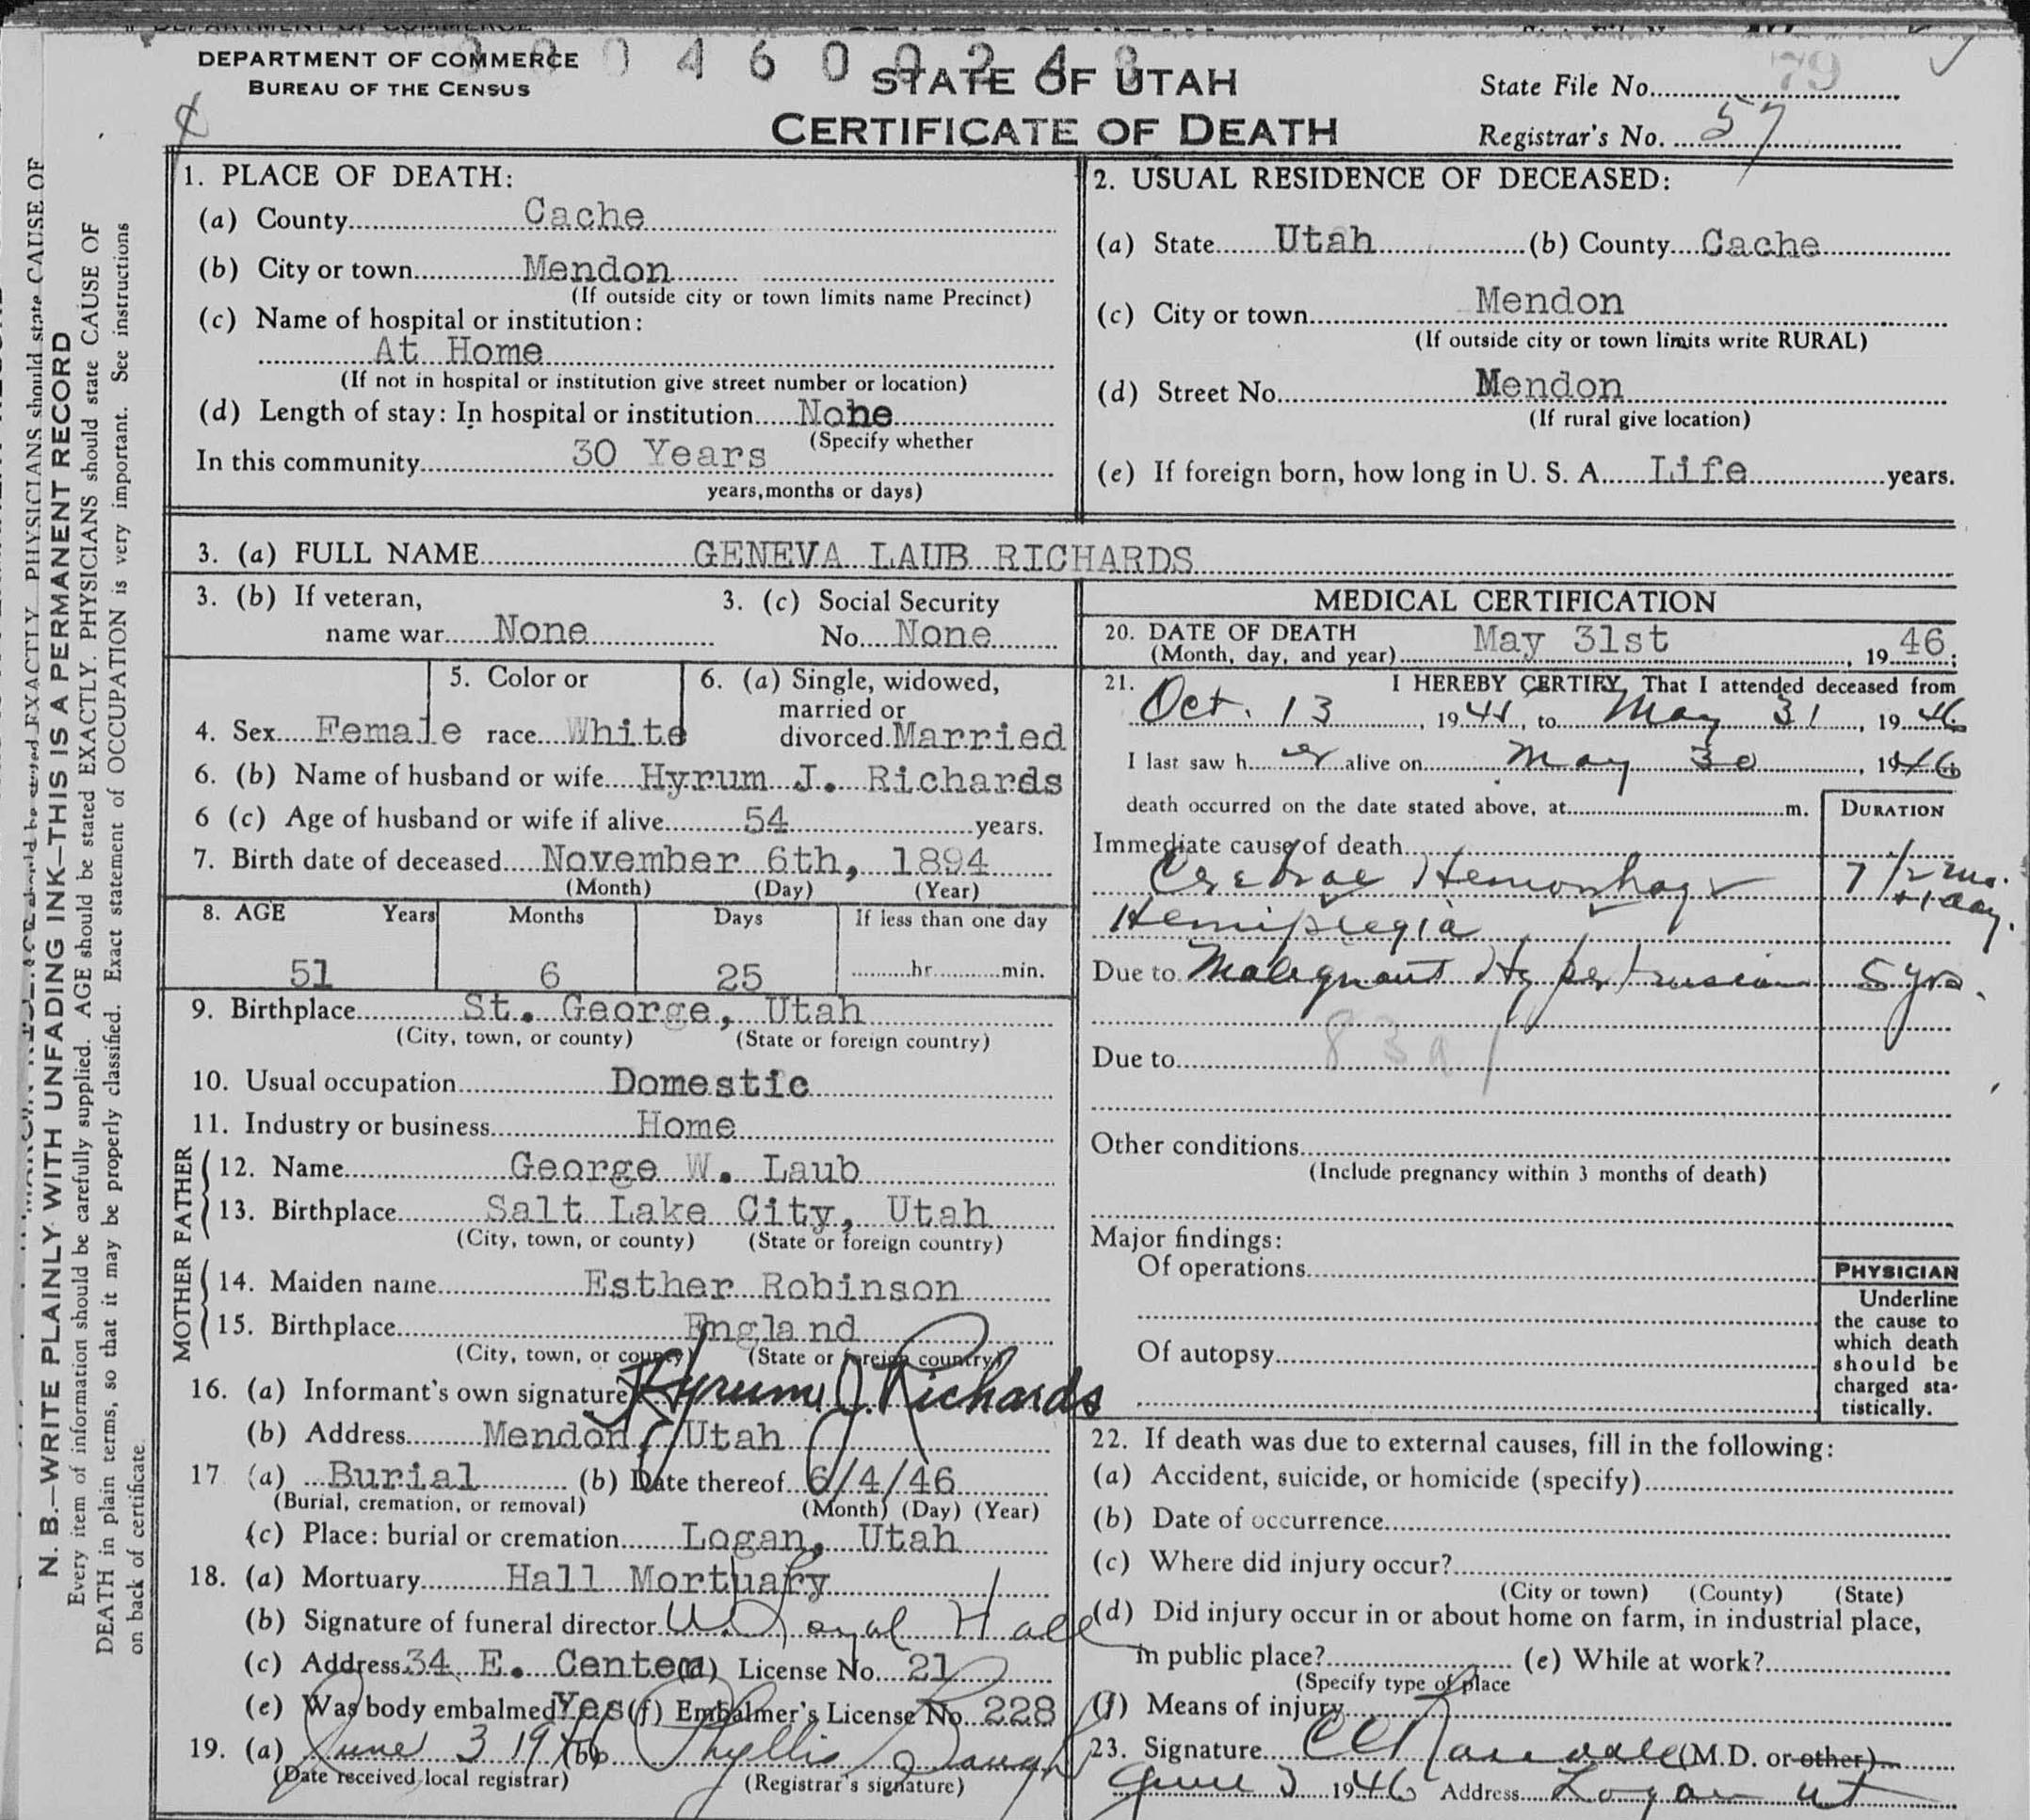 DEPARTMENT OF COMMERCE
BUREAU OF THE CENSUS
STATE OF UTAH
CERTIFICATE OF DEATH
State File No. 79
Registrar's No. 57
1. PLACE OF DEATH:
(a) County Cache
(b) City or town Mendon
(If outside city or town limits name Precinct)
(c) Name of hospital or institution:
At Home
(If not in hospital or institution give street number or location)
(d) Length of stay: In hospital or institution None
(Specify whether
In this community 30 Years
years, months or days)
2. USUAL RESIDENCE OF DECEASED:
(a) State Utah (b) County Cache
(c) City or town Mendon
(If outside city or town limits write RURAL)
(d) Street No. Mendon
(If rural give location)
(e) If foreign born, how long in U. S. A. Life years.
3. (a) FULL NAME GENEVA LAUB RICHARDS
3. (b) If veteran,
name war None
3. (c) Social Security
No. None
4. Sex Female
5. Color or
race White
6. (a) Single, widowed,
married or
divorced Married
6. (b) Name of husband or wife Hyrum J. Richards
6 (c) Age of husband or wife if alive 54 years.
7. Birth date of deceased November 6th, 1894
(Month) (Day) (Year)
8. AGE Years Months Days If less than one day
51 6 25 hr. min.
9. Birthplace St. George, Utah
(City, town, or county) (State or foreign country)
10. Usual occupation Domestic
11. Industry or business Home
FATHER
12. Name George W. Laub
13. Birthplace Salt Lake City, Utah
(City, town, or county) (State or foreign country)
MOTHER
14. Maiden name Esther Robinson
15. Birthplace England
(City, town, or county) (State or foreign country)
16. (a) Informant's own signature Hyrum J. Richards
(b) Address Mendon, Utah
17 (a) Burial (b) Date thereof 6/4/46
(Burial, cremation, or removal) (Month) (Day) (Year)
(c) Place: burial or cremation Logan, Utah
18. (a) Mortuary Hall Mortuary
(b) Signature of funeral director W. Loyal Hall
(c) Address 34 E. Center (d) License No. 21
(e) Was body embalmed? Yes (f) Embalmer's License No. 228
19. (a) June 3 1946 (b) Phyllis
(Date received local registrar) (Registrar's signature)
MEDICAL CERTIFICATION
20. DATE OF DEATH
(Month, day, and year) May 31st, 1946;
21. I HEREBY CERTIFY, That I attended deceased from
Oct. 13, 19 to May 31, 1946
I last saw her alive on May 30, 1946
death occurred on the date stated above, at m.
DURATION
Immediate cause of death
Cerebral Hemorrhage 7 1/2 mo.
+ 1 day.
Hemiplegia
Due to Malignant Hypertension 5 yrs.
83a
Due to
Other conditions
(Include pregnancy within 3 months of death)
Major findings:
Of operations
Of autopsy
PHYSICIAN
Underline
the cause to
which death
should be
charged sta-
tistically.
22. If death was due to external causes, fill in the following:
(a) Accident, suicide, or homicide (specify)
(b) Date of occurrence
(c) Where did injury occur?
(City or town) (County) (State)
(d) Did injury occur in or about home on farm, in industrial place,
in public place? (e) While at work?
(Specify type of place
(f) Means of injury
23. Signature (M.D. or other)
June 3 1946 Address Logan Ut
N. B.—WRITE PLAINLY WITH UNFADING INK—THIS IS A PERMANENT RECORD
Every item of information should be carefully supplied. AGE should be stated EXACTLY. PHYSICIANS should state CAUSE OF
DEATH in plain terms, so that it may be properly classified. Exact statement of OCCUPATION is very important. See instructions
on back of certificate.